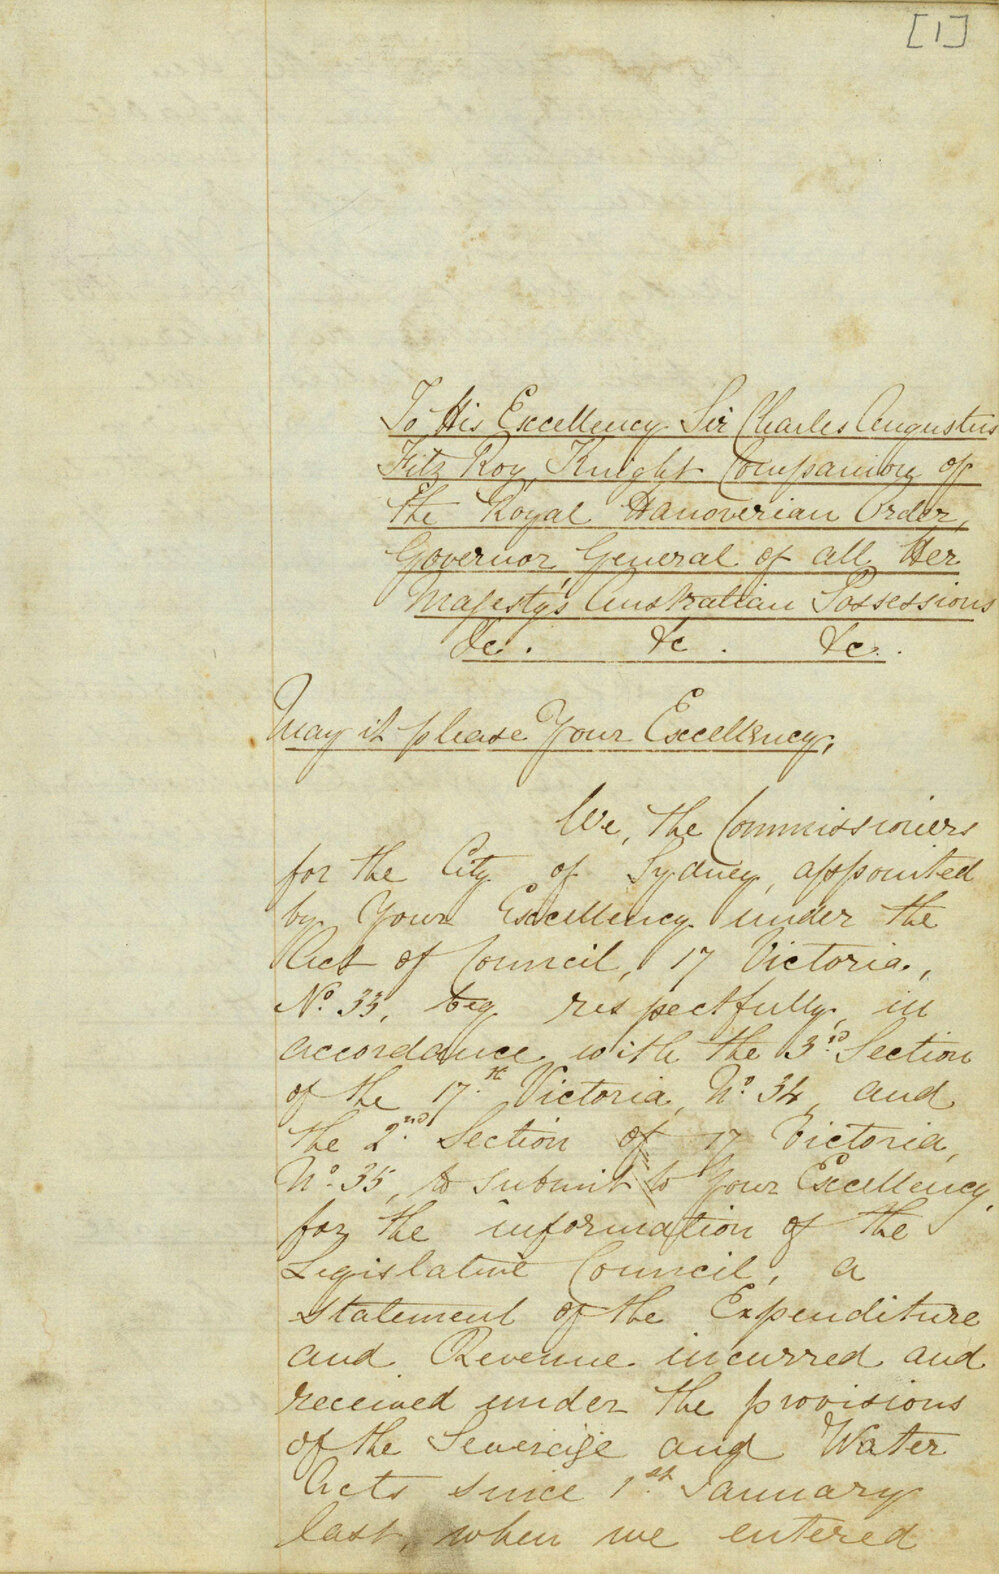 [1]
To His Excellency Sir Charles Augustus
Fitz Roy, Knight Companion of
the Royal Hanoverian Order,
Governor General of all Her
Majesty's Australian Possessions
&c. &c. &c.
May it please Your Excellency,
We, the Commissioners
for the City of Sydney, appointed
by Your Excellency under the
Act of Council, 17 Victoria,
No. 33, beg respectfully, in
accordance with the 3rd Section
of the 17th Victoria, No. 34, and
the 2nd Section of 17 Victoria,
No. 35, to submit to Your Excellency,
for the information of the
Legislative Council, a
statement of the Expenditure
and Revenue incurred and
received under the provisions
of the Sewerage and Water
Acts since 1st January
last, when we entered